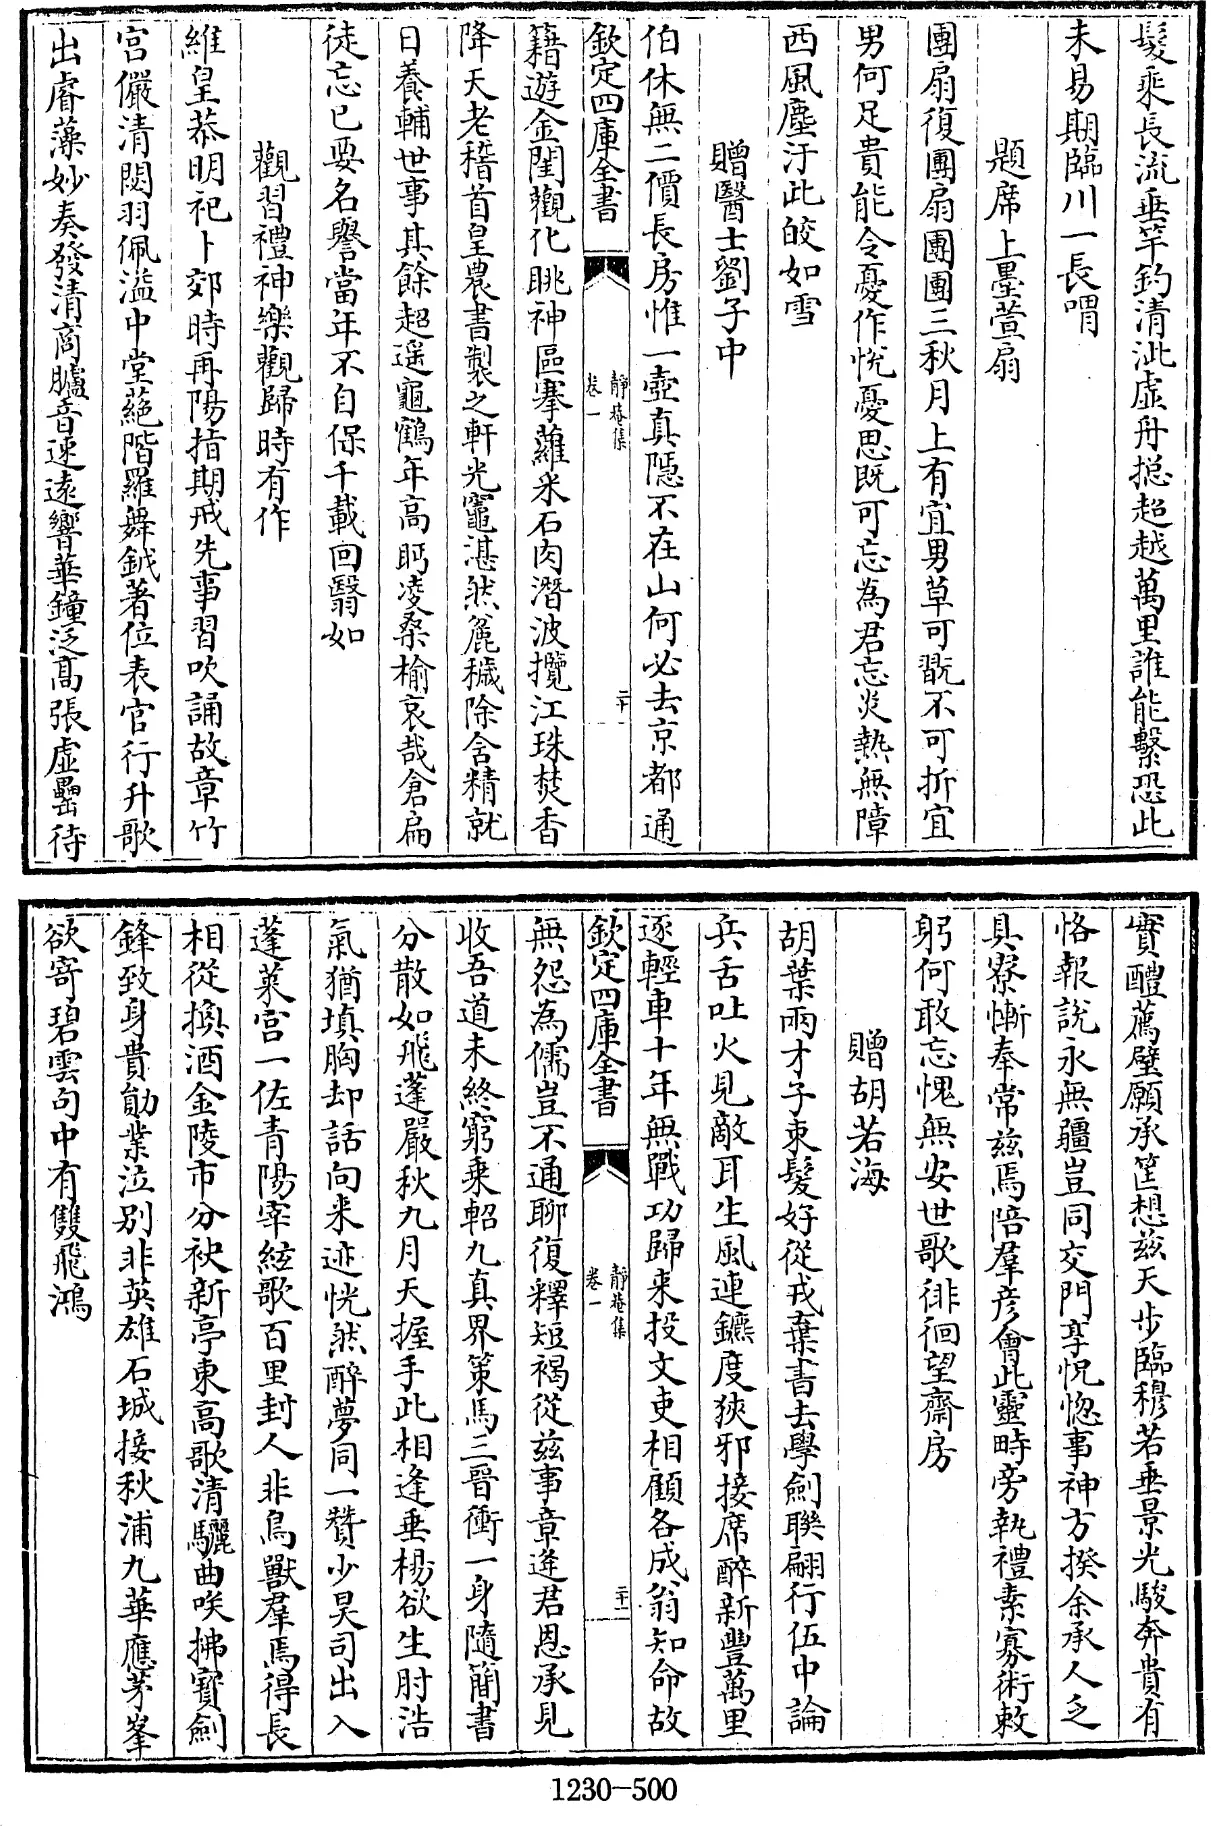 髮乘長流垂竿釣清沘虛舟挹超越萬里誰能繫恐此
未易期臨川一長喟
題席上墨萱扇
團扇復團扇團團三秋月上有宜男草可翫不可折宜
男何足貴能令憂作忻憂思既可忘為君忘炎熱無障
西風塵汙此皎如雪
贈醫士劉子中
伯休無二價長房惟一壺真隱不在山何必去京都通
欽定四庫全書
靜菴集
卷一
二十
籍遊金閨觀化眺神區搴蘿采石肉潛波攬江珠焚香
降天老稽首皇農書製之軒光竈湛然麄穢除含精就
日養輔世事其餘超遥龜鶴年高眄凌桑榆哀哉倉扁
徒忘已要名譽當年不自保千載回翳如
觀習禮神樂觀歸時有作
維皇恭明祀卜郊時再陽指期戒先事習吹誦故章竹
宫儼清閟羽佩溢中堂蕝階羅舞鉞著位表官行升歌
出睿藻妙奏發清商臚音速遠響華鐘泛髙張虛罍待
實醴薦璧願承筐想茲天步臨穆若垂景光駿奔貴有
恪報說永無疆豈同交門享怳惚事神方揆余承人乏
具寮慚奉常兹焉陪羣彦會此靈畤旁執禮素寡術敕
躬何敢忘愧無安世歌徘徊望齋房
贈胡若海
胡葉兩才子束髮好從戎棄書去學劍聯翩行伍中論
兵舌吐火見敵耳生風連鑣度狹邪接席醉新豐萬里
逐輕車十年無戰功歸来投文吏相顧各成翁知命故
欽定四庫全書
靜菴集
卷一
二十一
無怨為儒豈不通聊復釋短褐從兹事章逢君恩承見
收吾道未終窮乘軺九真界策馬三晉衝一身隨簡書
分散如飛蓬嚴秋九月天握手此相逢垂楊欲生肘浩
氣猶填胸却話向来迹恍然醉夢同一贊少昊司出入
蓬萊宫一佐青陽宰絃歌百里封人非鳥獸羣焉得長
相從換酒金陵市分袂新亭東高歌清驪曲咲拂寳劍
鋒致身貴勛業泣别非英雄石城接秋浦九華應茅峯
欲寄碧雲句中有雙飛鴻
1230-500